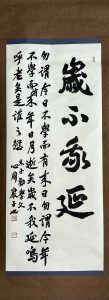 歲不我延
勿謂今日不學而有來日勿謂今年
不學而有來年日月逝矣歲不我延嗚
呼老矣是誰之愆 朱子勸學文